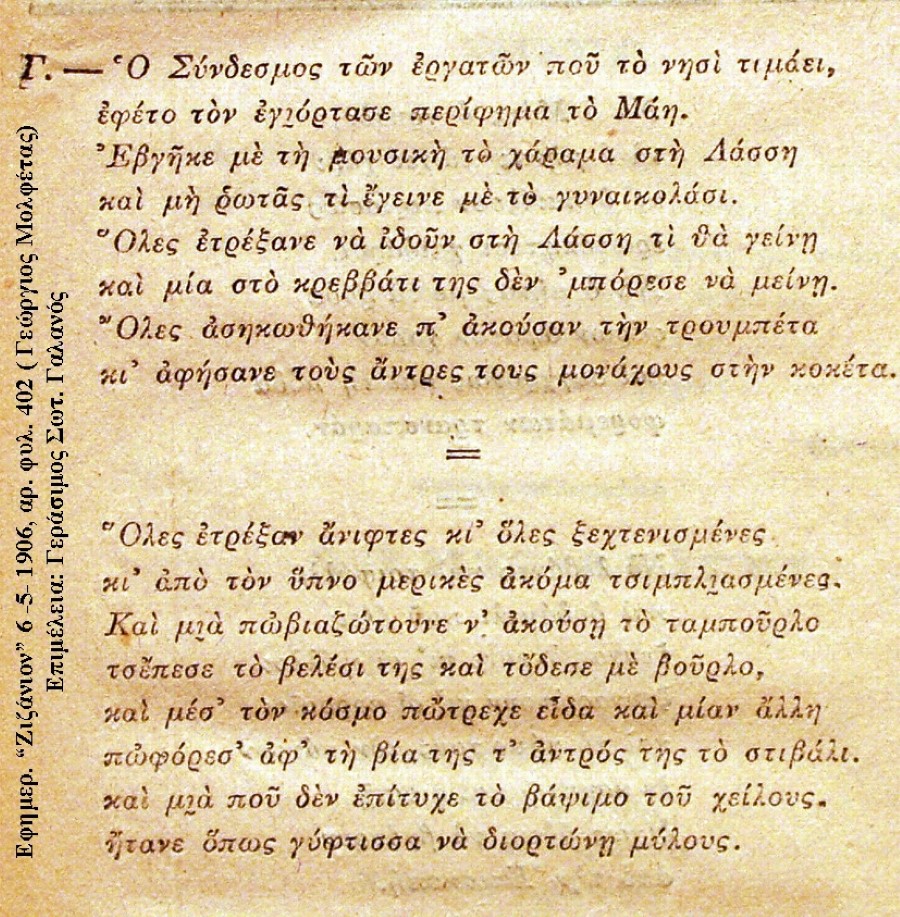 Γ. — Ὁ Σύνδεσμος τῶν ἐργατῶν ποῦ τὸ νησὶ τιμάει,
ἐφέτο τὸν ἐγιόρτασε περίφημα τὸ Μάη.
Ἐβγῆκε μὲ τὴ μουσικὴ τὸ χάραμα στὴ Λάσση
καὶ μὴ ρωτᾶς τὶ ἔγεινε μὲ τὸ γυναικολάσι.
Ὅλες ἐτρέξανε νὰ ἰδοῦν στὴ Λάσση τὶ θὰ γείνῃ
καὶ μία στὸ κρεββάτι της δὲν ᾿μπόρεσε νὰ μείνῃ.
Ὅλες ἀσηκωθήκανε π᾿ ἀκούσαν τὴν τρουμπέτα
κι᾿ ἀφήσανε τοὺς ἄντρες τους μονάχους στὴν κοκέτα.
Ὅλες ἐτρέξαν ἄνιφτες κι᾿ ὅλες ξεχτενισμένες
κι᾿ ἀπὸ τὸν ὕπνο μερικὲς ἀκόμα τσιμπλιασμένες.
Καὶ μιὰ πὤβιαζώτουνε ν᾿ ἀκούσῃ τὸ ταμποῦρλο
τσἔπεσε τὸ βελέσι της καὶ τὄδεσε μὲ βοῦρλο,
καὶ μέσ᾿ τὸν κόσμο πὤτρεχε εἶδα καὶ μίαν ἄλλη
πὠφόρεσ᾿ ἀφ᾿ τὴ βία της τ᾿ ἀντρός της τὸ στιβάλι.
καὶ μιὰ ποῦ δὲν ἐπίτυχε τὸ βάψιμο τοῦ χείλους.
ἤτανε ὅπως γύφτισσα νὰ διορτώνῃ μύλους.
Εφημερ. “Ζιζάνιον” 6 –5- 1906, αρ. φυλ. 402 ( Γεώργιος Μολφέτας)
Επιμέλεια: Γεράσιμος Σωτ. Γαλανός